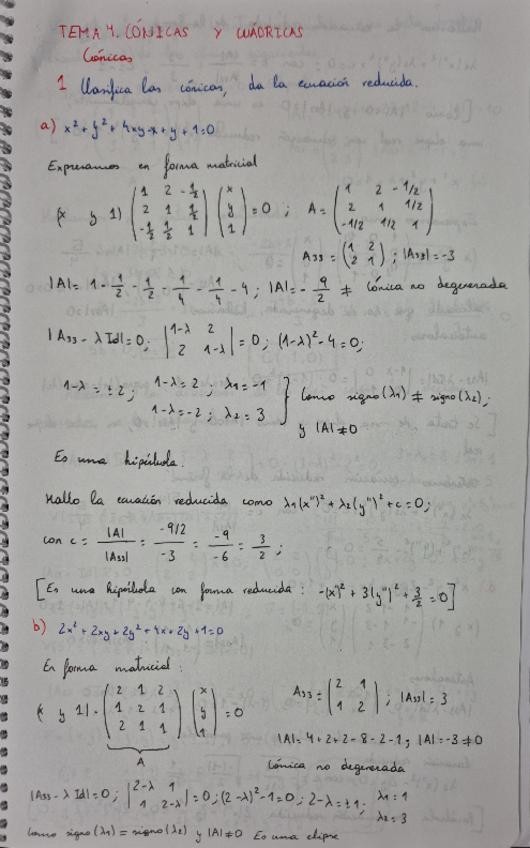 TEMA 4. CÓNICAS Y CUÁDRICAS
Cónicas
1 Clasifica las cónicas, da la ecuación reducida.
a) x² + y² + 4xy - x + y + 1 = 0
Expresamos en forma matricial
(x y 1) (1 2 -1/2; 2 1 1/2; -1/2 1/2 1) (x; y; 1) = 0 ; A = (1 2 -1/2; 2 1 1/2; -1/2 1/2 1)
A33 = (1 2; 2 1) ; |A33| = -3
|A| = 1 - 1/2 - 1/2 - 1/4 - 1/4 - 4 ; |A| = - 9/2 ≠ Cónica no degenerada
|A33 - λ Id| = 0 ; |1-λ 2; 2 1-λ| = 0 ; (1-λ)² - 4 = 0 ;
1-λ = ±2 ; 1-λ = 2 ; λ1 = -1
1-λ = -2 ; λ2 = 3 } Como signo (λ1) ≠ signo (λ2) ;
y |A| ≠ 0
Es una hipérbola.
Hallo la ecuación reducida como λ1(x'')² + λ2(y'')² + c = 0 ;
con c = |A|/|A33| = -9/2/-3 = -9/-6 = 3/2 ;
[Es una hipérbola con forma reducida : -(x)² + 3(y'')² + 3/2 = 0]
b) 2x² + 2xy + 2y² + 4x + 2y + 1 = 0
En forma matricial :
(x y 1) · (2 1 2; 1 2 1; 2 1 1) (x; y; 1) = 0
A
A33 = (2 1; 1 2) ; |A33| = 3
|A| = 4 + 2 + 2 - 8 - 2 - 1 ; |A| = -3 ≠ 0
Cónica no degenerada
|A33 - λ Id| = 0 ; |2-λ 1; 1 2-λ| = 0 ; (2-λ)² - 1 = 0 ; 2-λ = ±1 ; λ1 = 1
λ2 = 3
Como signo (λ1) = signo (λ2) y |A| ≠ 0 Es una elipse